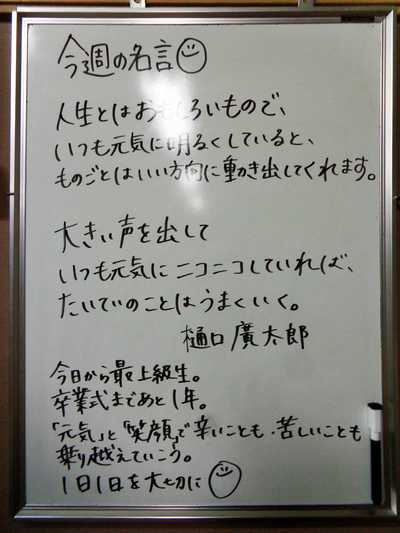 今週の名言
人生とはおもしろいもので、
いつも元気に明るくしていると、
ものごとはいい方向に動き出してくれます。
大きい声を出して
いつも元気にニコニコしていれば、
たいていのことはうまくいく。
樋口廣太郎
今日から最上級生。
卒業式まであと1年。
「元気」と「笑顔」で辛いことも・苦しいことも
乗り越えていこう。
1日1日を大切に